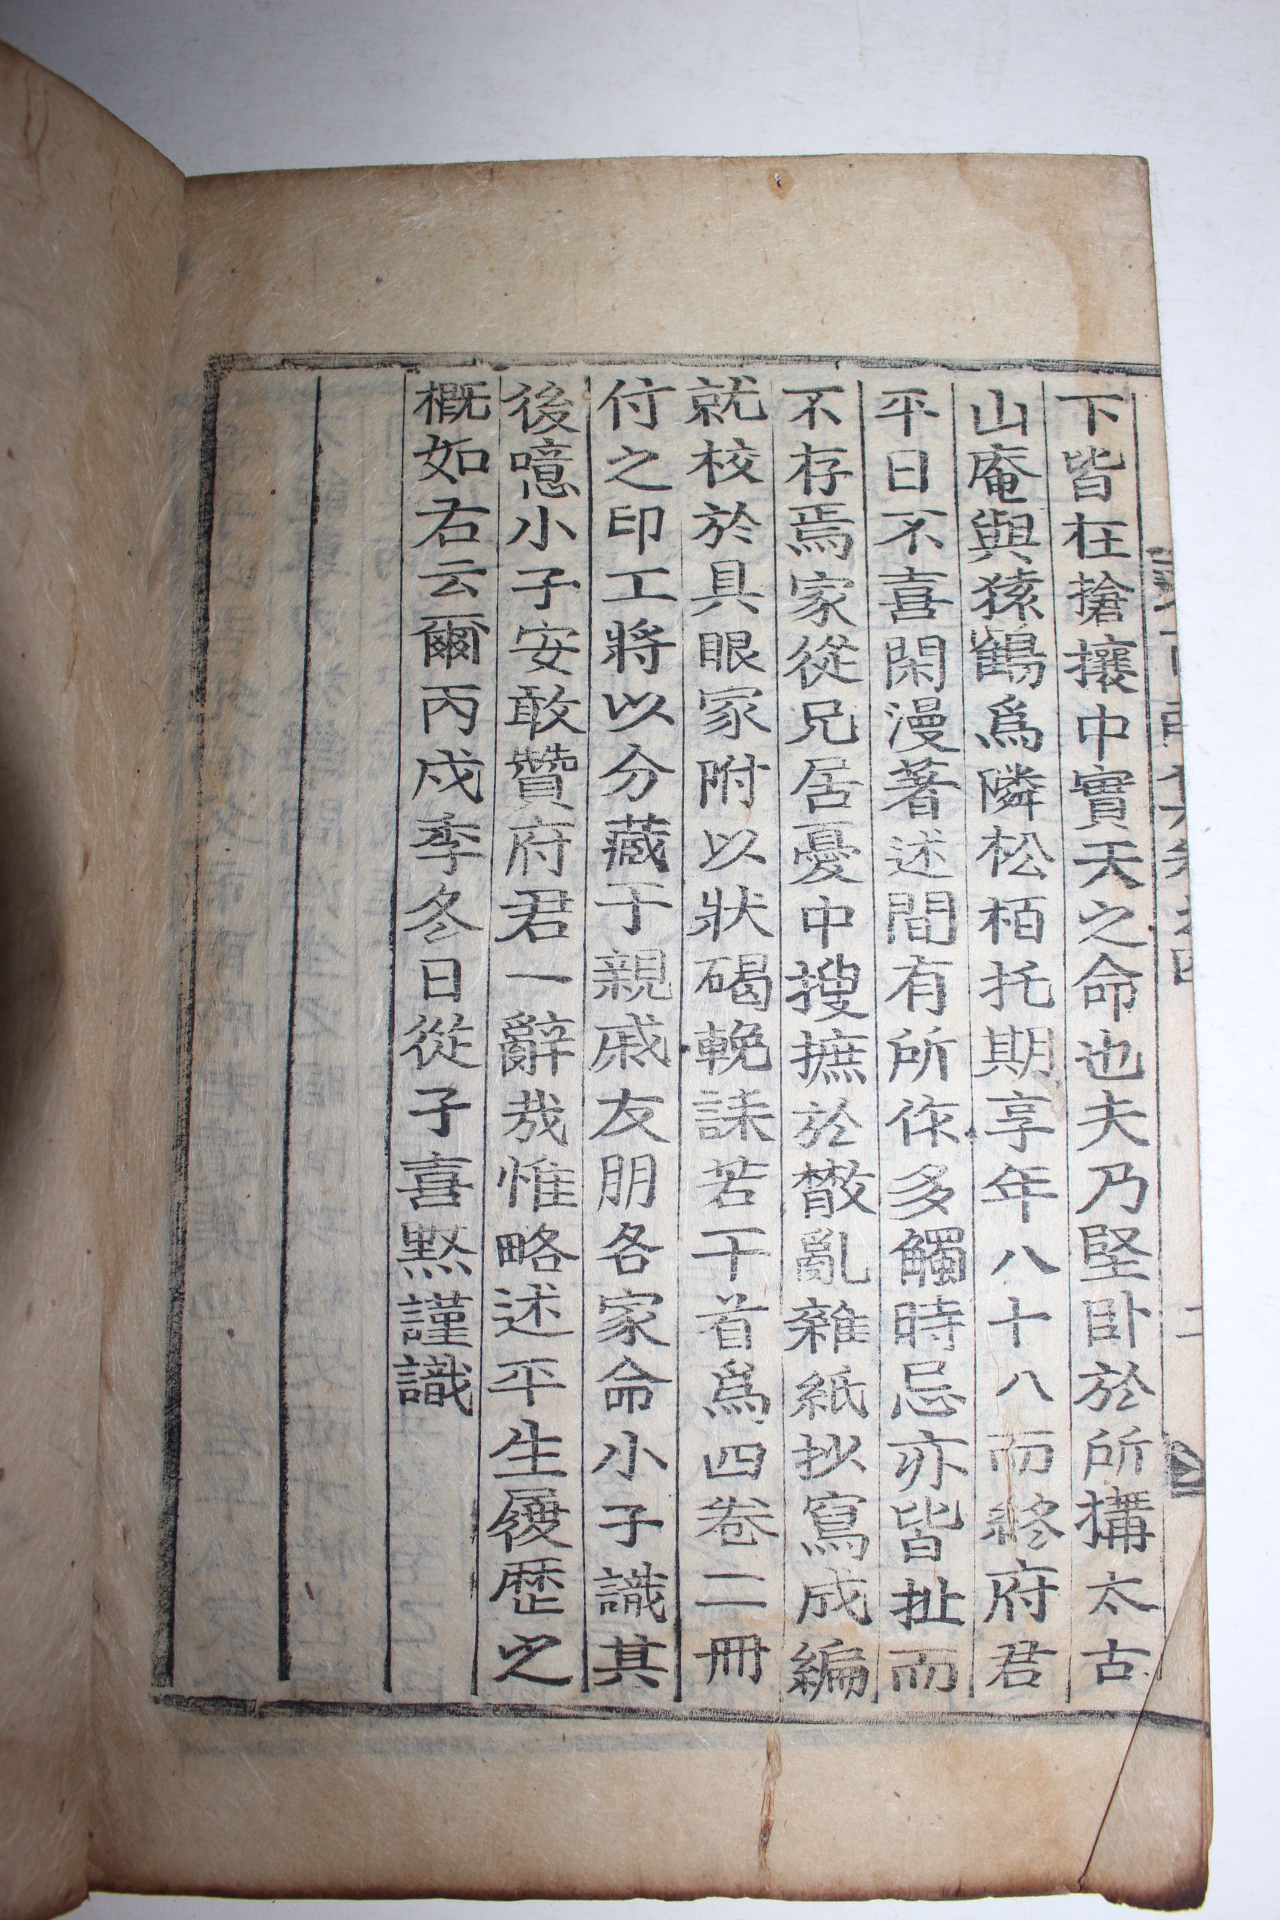 下皆在搶攘中實天之命也夫乃堅卧於所搆太古
山庵與猿鶴爲隣松栢托期享年八十八而終府君
平日不喜閑漫著述間有所作多觸時忌亦皆扯而
不存焉家從兄居憂中搜摭於散亂雜紙抄寫成編
就校於具眼家附以狀碣輓誄若干首爲四卷二冊
付之印工將以分藏于親戚友朋各家命小子識其
後噫小子安敢贊府君一辭哉惟略述平生履歷之
槪如右云爾丙戌季冬日從子喜黙謹識